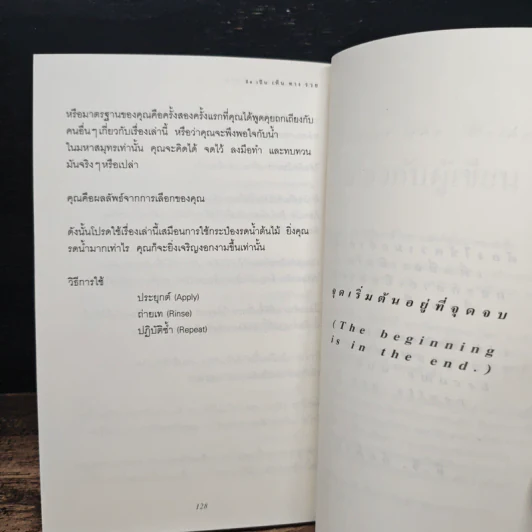 เดิน ทาง รวย
หรือมาตรฐานของคุณคือครั้งสองครั้งแรกที่คุณได้พูดคุยถกเถียงกับ
คนอื่นๆ เกี่ยวกับเรื่องเล่านี้ หรือว่าคุณจะพึงพอใจกับน้ำ
ในมหาสมุทรเท่านั้น คุณจะคิดได้ จดไว้ ลงมือทำ และทบทวน
มันจริงๆ หรือเปล่า
คุณคือผลลัพธ์จากการเลือกของคุณ
ดังนั้นโปรดใช้เรื่องเล่านี้เสมือนการใช้กระป๋องรดน้ำต้นไม้ ยิ่งคุณ
รดน้ำมากเท่าไร คุณก็จะยิ่งเจริญงอกงามขึ้นเท่านั้น
วิธีการใช้
ประยุกต์ (Apply)
ถ่ายเท (Rinse)
ปฏิบัติซ้ำ (Repeat)
128
จุดเริ่มต้นอยู่ที่จุดจบ
(The beginning
is in the end.)